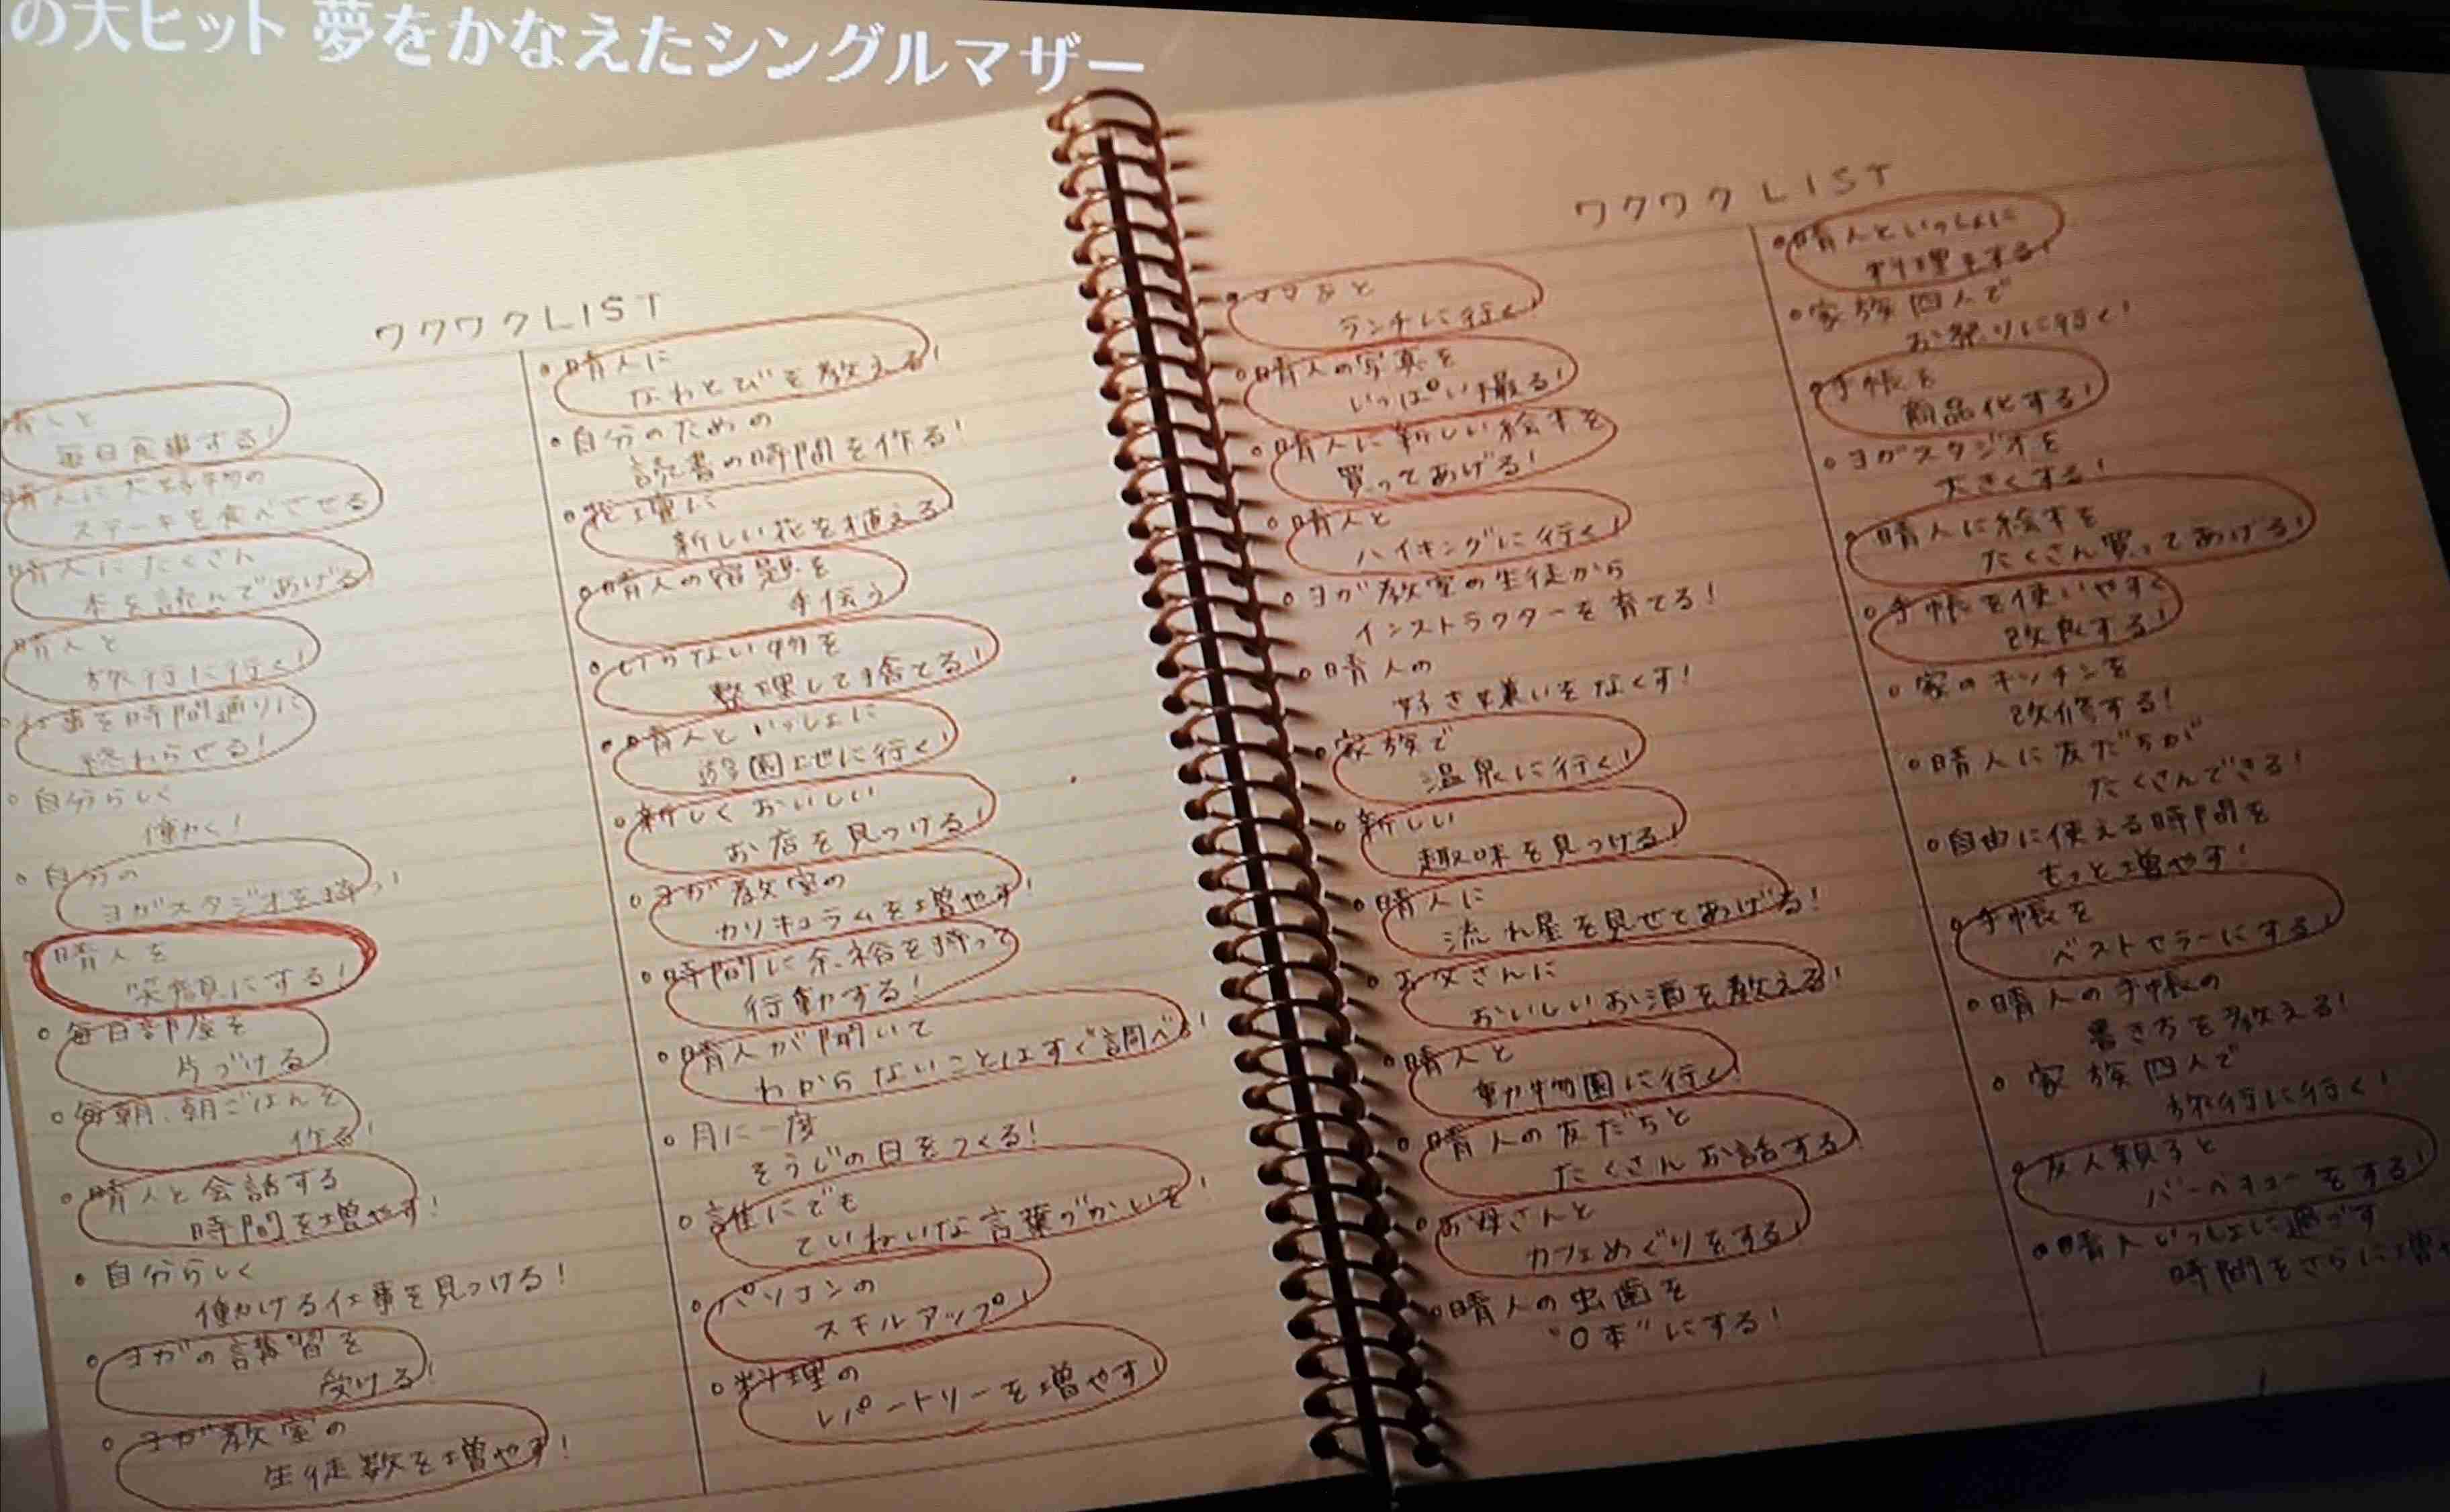 の大ヒット 夢をかなえたシングルマザー
ワクワクLIST
晴人と
毎日食事する!
晴人に大好物の
ステーキを食べさせる
晴人にたくさん
本を読んであげる
晴人と
旅行に行く!
仕事を時間通りに
終わらせる!
・自分らしく
働く!
・自分の
ヨガスタジオを持つ!
・晴人を
笑顔にする!
・毎日部屋を
片づける
・毎朝、朝ごはんを
作る!
・晴人と会話する
時間を増やす!
・自分らしく
働ける仕事を見つける!
・ヨガの講習を
受ける!
・ヨガ教室の
生徒数を増やす!
・晴人に
なわとびを教える!
・自分のための
読書の時間を作る!
・花壇に
新しい花を植える
・晴人の宿題を
手伝う
・いらない物を
整理して捨てる!
・晴人といっしょに
遊園地に行く!
・新しくおいしい
お店を見つける!
・ヨガ教室の
カリキュラムを増やす!
・時間に余裕を持って
行動する!
・晴人が聞いて
わからないことはすぐ調べる!
・月に一度
そうじの日をつくる!
・誰にでも
ていねいな言葉づかいを!
・パソコンの
スキルアップ!
・料理の
レパートリーを増やす!
ワクワクLIST
・ママ友と
ランチに行く!
・晴人の写真を
いっぱい撮る!
・晴人に新しい絵本を
買ってあげる!
・晴人と
ハイキングに行く!
・ヨガ教室の生徒から
インストラクターを育てる!
・晴人の
好き嫌いをなくす!
・家族で
温泉に行く!
・新しい
趣味を見つける!
・晴人に
流れ星を見せてあげる!
・お父さんに
おいしいお酒を教える!
・晴人と
動物園に行く!
・晴人の友だちと
たくさんお話する!
・お母さんと
カフェめぐりをする!
・晴人の虫歯を
"0本"にする!
・晴人といっしょに
料理をする!
・家族四人で
お祭りに行く!
・手帳を
商品化する!
・ヨガスタジオを
大きくする!
・晴人に絵本を
たくさん買ってあげる!
・手帳を使いやすく
改良する!
・家のキッチンを
改修する!
・晴人に友だちが
たくさんできる!
・自由に使える時間を
もっと増やす!
・手帳を
ベストセラーにする!
・晴人の手帳の
書き方を教える!
・家族四人で
旅行に行く!
・友人親子と
バーベキューをする!
・晴人といっしょに過ごす
時間をさらに増や